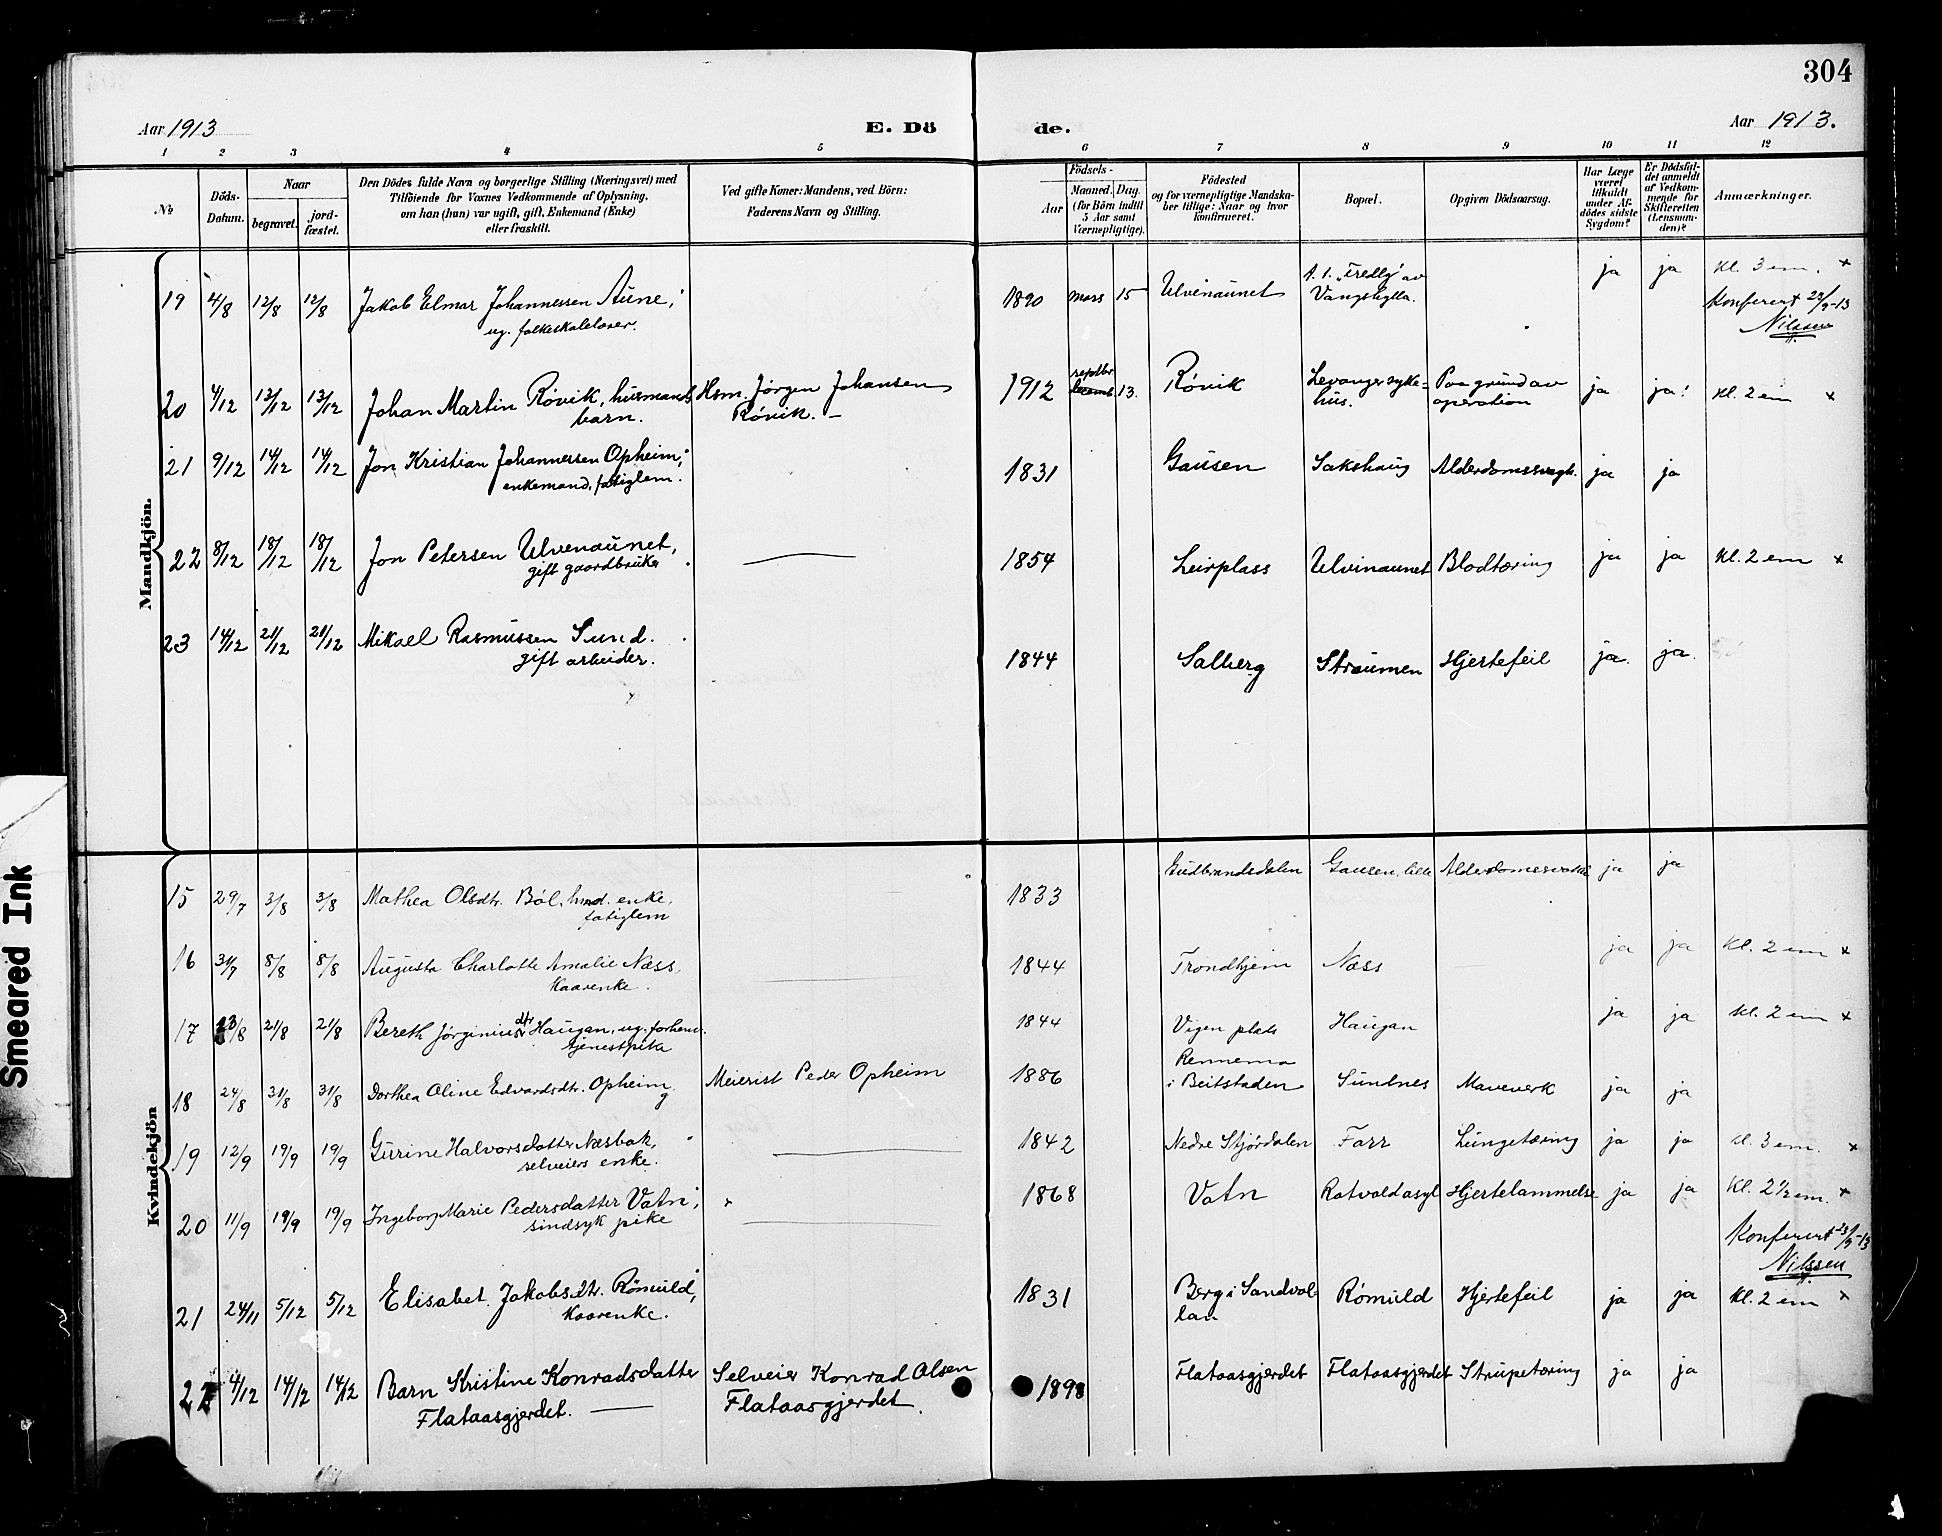 304
Aar 1913
E. Dö
de.
Aar 1913.
1 2 3 4 5 6 7 8 9 10 11 12
No
Döds-
Datum.
Naar
begravet.
jord-
fæstet.
Den Dödes fulde Navn og borgerlige Stilling (Næringsvei) med
Tilföiende for Voxnes Vedkommende af Oplysning,
om han (hun) var ugift, gift, Enkemand (Enke)
eller fraskilt.
Ved gifte Koner: Mandens, ved Börn:
Faderens Navn og Stilling.
Födsels-
Aar
Maaned.
Dag.
(for Börn indtil
5 Aar samt
Værnepligtige).
Födested
og for værnepligtige Mandska-
ber tillige: Naar og hvor
konfirmeret.
Bopæl.
Opgiven Dödsaarsag.
Har Læge
været
tilkaldt
under Af-
dödes sidste
Sygdom?
Er Dödsfal-
det anmeldt
af Vedkom-
mende for
Skifteretten
(Lensman-
den)?
Anmærkninger.
Mandkjön.
19 4/8 12/8 12/8 Jakob Elmar Johannessen Aune, 1890 mars 15 Ulvinaunet "Fredly" av ja ja kl. 3 em. x
ug. folkeskolelærer. Vangshylla. Konferert 23/9-13
Nilssen
20 4/12 13/12 13/12 Johan Martin Røvik, husmands Hsm. Jørgen Johansen 1912 septbr 13. Røvik Levanger syke- Paa grund av ja ja! kl. 2 em x
barn. Røvik. — hus. operation
21 9/12 14/12 14/12 Jon Kristian Johannessen Opheim, 1831 Gausen Sakshaug Alderdomssvagh. ja ja
enkemand, fatiglem.
22 8/12 18/12 18/12 Jon Petersen Ulvenaunet, — 1854 Leirplass Ulvinaunet Blodtæring ja ja Kl. 2 em x
gift gaardbruker
23 14/12 21/12 21/12 Mikael Rasmussen Sund. 1844 Salberg Straumen Hjertefeil ja. ja.
gift arbeider.
Kvindekjön
15 29/7 3/8 3/8 Mathea Olsdtr. Bøl, hmd. enke, 1833 Gudbrandsdalen Gausen, lille ja ja
fatiglem
16 31/7 8/8 8/8 Augusta Charlotte Amalie Næss, — 1844 Trondhjem Næss — ja ja Kl. 2 em x
Kaarenke.
17 13/8 21/8 21/8 Bereth Jørginiusdtr Haugan, ug. forhenv. 1844 Vigen plads Haugan ja ja kl. 2 em x
tjenestpike
18 24/8 31/8 31/8 Dorthea Oline Edvardsdtr. Opheim Meierist Peder Opheim 1886 Rennema
i Beitstaden Sundnes Maveverk ja ja
19 12/9 19/9 19/9 Gurine Halvorsdatter Næsbak, — 1842 Nedre Stjørdalen Farr Lungetæring ja ja kl. 3 em. x
selveiers enke.
20 11/9 19/9 19/9 Ingeborg Marie Pedersdatter Vatn, — 1868 Vatn Rotvold asyl Hjertelammelse ja ja Kl. 2 1/2 em. x
sindsyk pike Konferert 23/9-13
Nilssen
21 24/11 5/12 5/12 Elisabet Jakobsdtr. Rømuld, 1831 Berg i Sandvol- Rømuld Hjertefeil ja ja kl. 2 em x
lan
Kaarenke.
22 4/12 14/12 14/12 Barn Kristine Konradsdatter Selveier Konrad Olsen 1898 Flataasgjerdet Flataasgjerdet Strupetæring ja ja
Flataasgjerdet. — Flataasgjerdet.
Smeared Ink